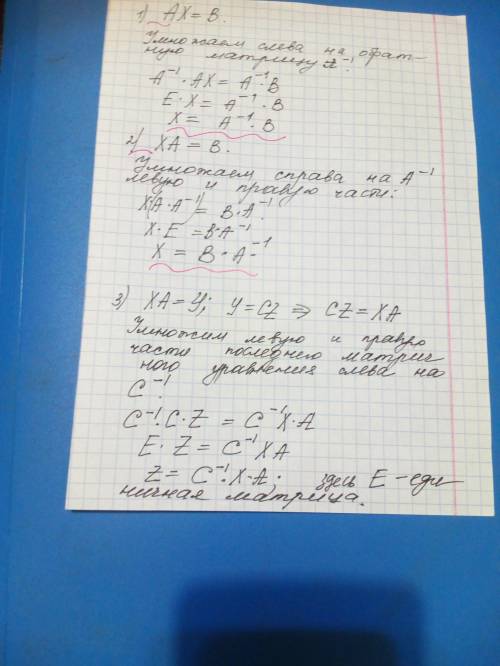 1) AX = B.
Умножаем слева на обрат-
ную матрицу A⁻¹:
A⁻¹ · AX = A⁻¹ · B
E · X = A⁻¹ · B
X = A⁻¹ · B
2) XA = B.
Умножаем справа на A⁻¹
левую и правую части:
X(A · A⁻¹) = B · A⁻¹
X · E = B · A⁻¹
X = B · A⁻¹
3) XA = У; У = CZ ⇒ CZ = XA
Умножим левую и правую
части последнего матрич
ного уравнения слева на
C⁻¹:
C⁻¹ · C · Z = C⁻¹X · A
E · Z = C⁻¹XA
Z = C⁻¹ · X · A; здесь E – еди
ничная матрица.